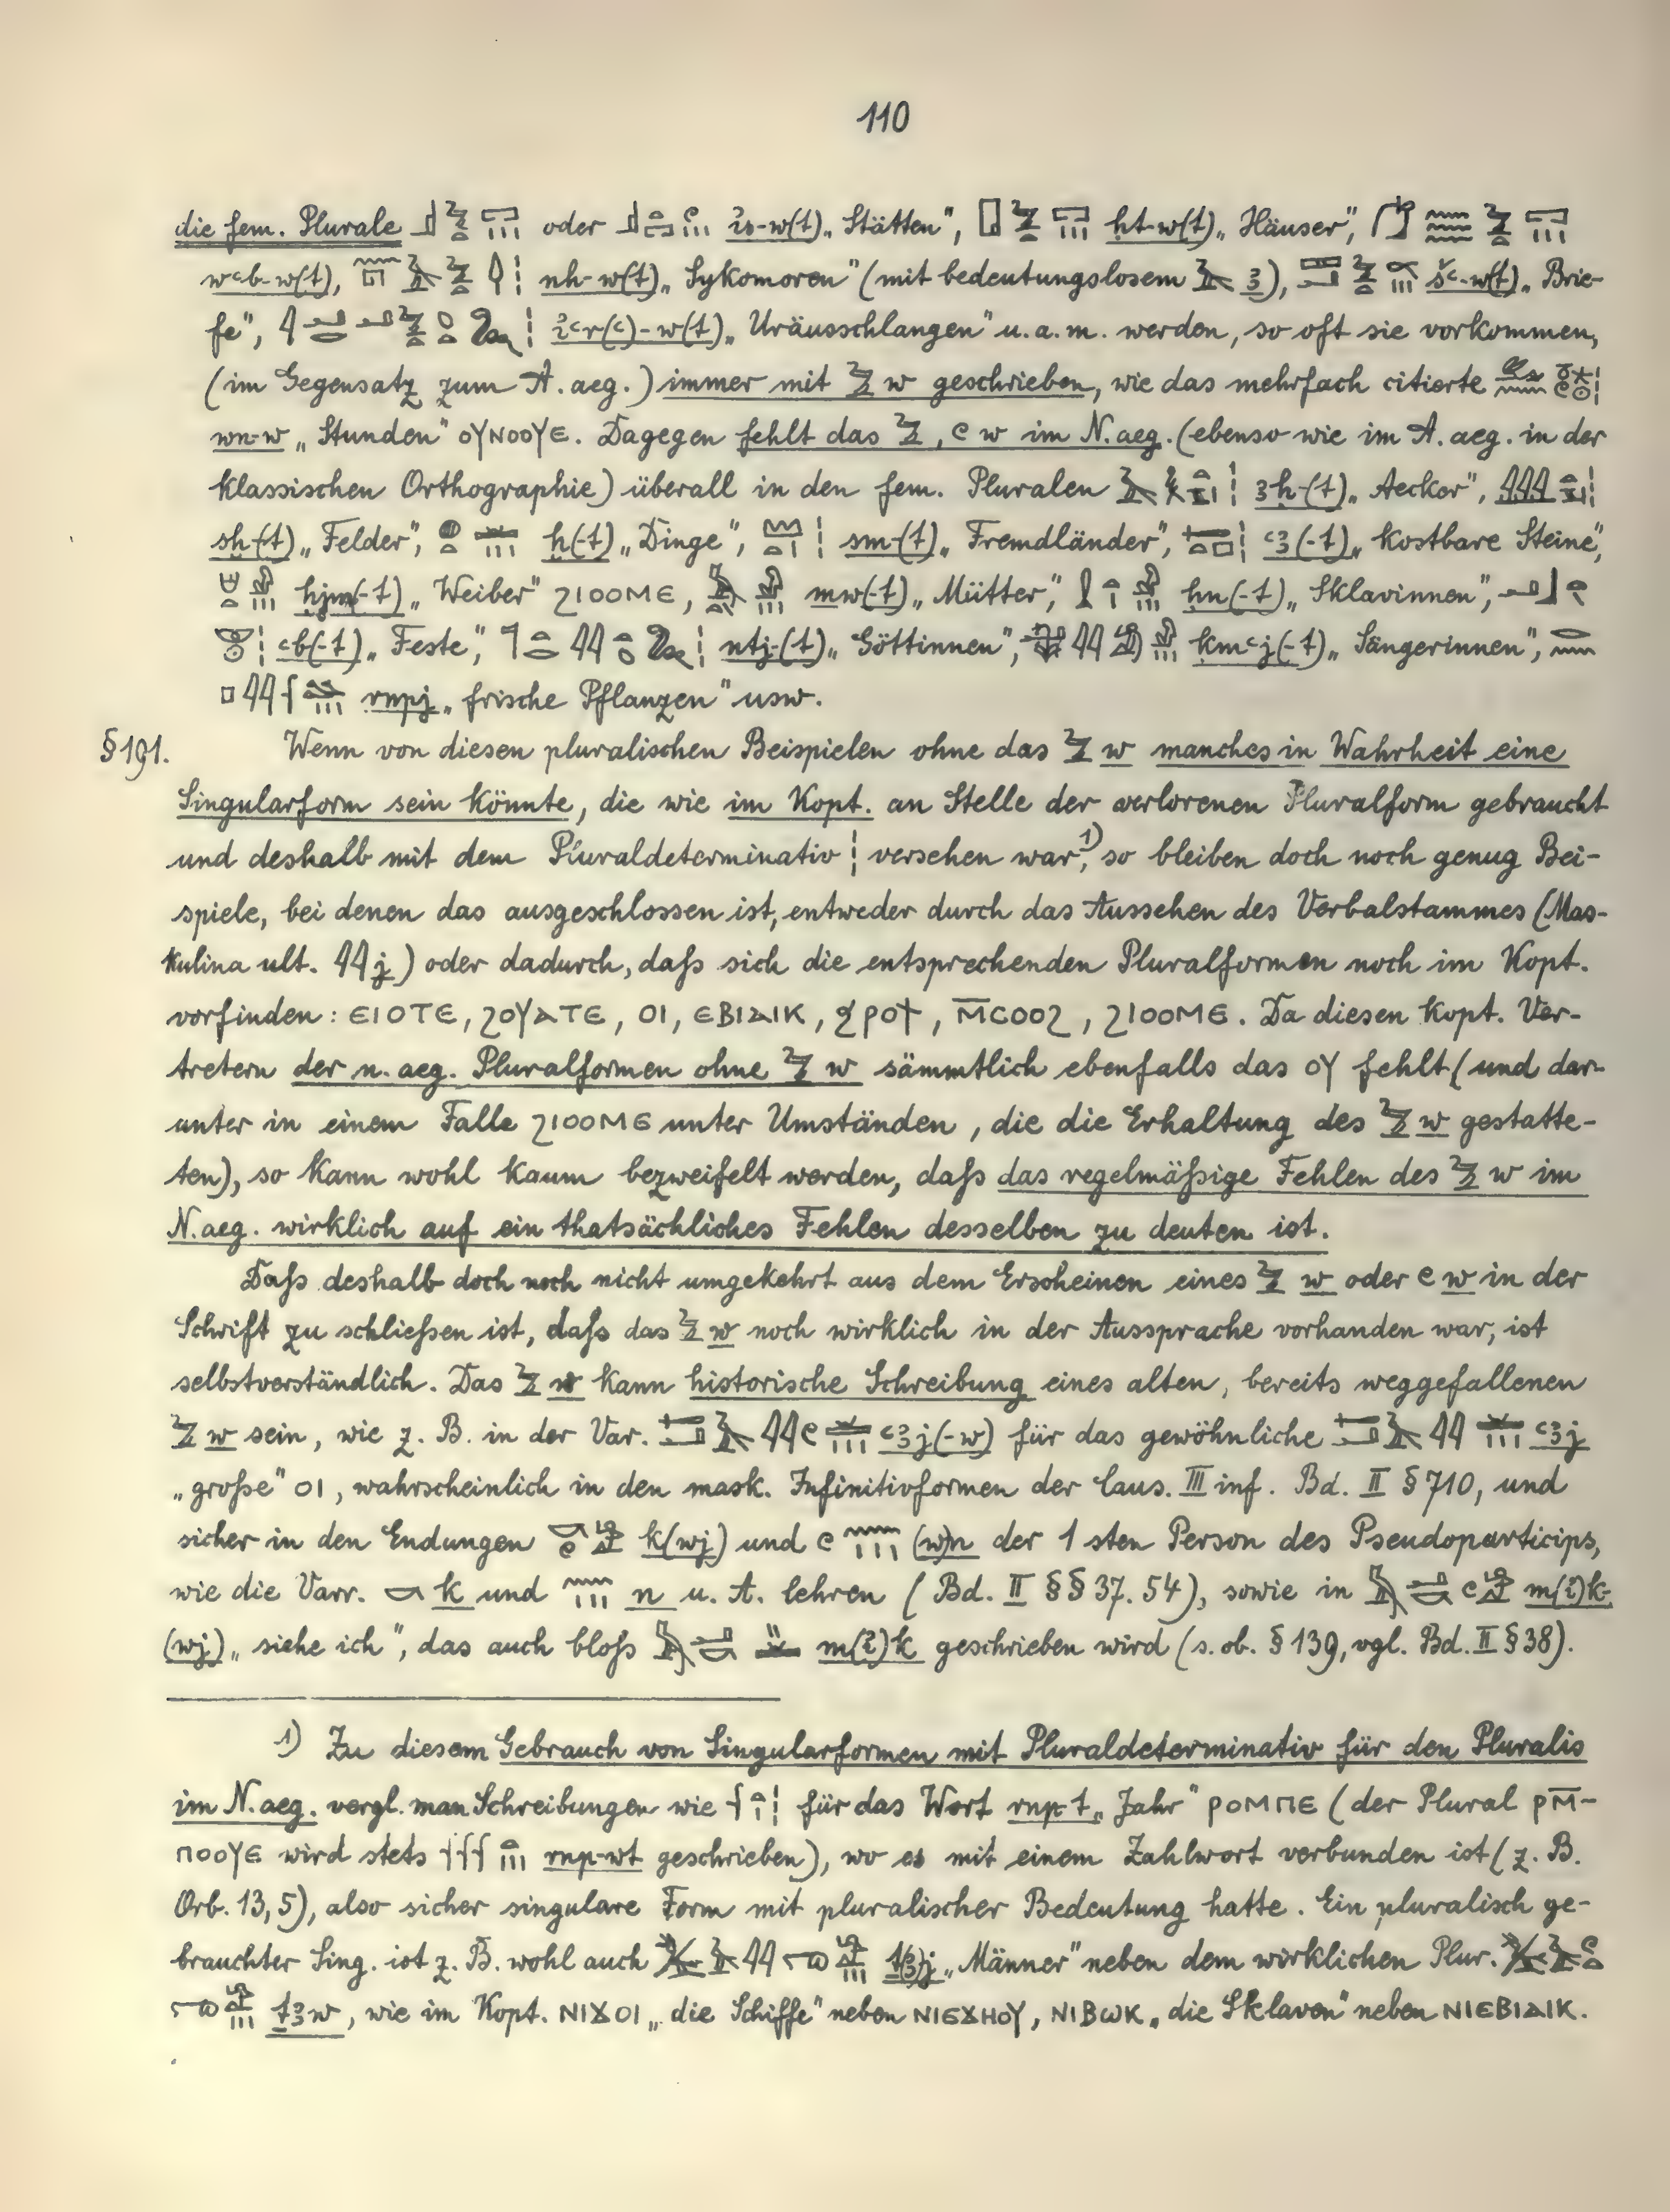 110
die fem. Plurale oder is-w(t) „Stätten“, ḥt-w(t) „Häuser“,
wꜥb-w(t), nh-w(t) „Sykomoren“ (mit bedeutungslosem ꜣ), šꜥ-w(t) „Brie-
fe“, iꜥr(ꜥ)-w(t) „Uräusschlangen“ u. a. m. werden, so oft sie vorkommen,
(im Gegensatz zum A. aeg.) immer mit w geschrieben, wie das mehrfach citierte
wn-w „Stunden“ ⲟⲩⲛⲟⲟⲩⲉ. Dagegen fehlt das , w im N. aeg. (ebenso wie im A. aeg. in der
klassischen Orthographie) überall in den fem. Pluralen ꜣḥ-(t) „Aecker“,
sḫ-(t) „Felder“, ḫ(-t) „Dinge“, sm-(t) „Fremdländer“, ꜥꜣ(-t) „kostbare Steine“,
ḥjm(-t) „Weiber“ ϩⲓⲟⲟⲙⲉ, mw(-t) „Mütter“, ḥn(-t) „Sklavinnen“,
ꜥb(-t) „Feste“, ntj-(t) „Göttinnen“, kmꜥj(-t) „Sängerinnen“,
rnpj „frische Pflanzen“ usw.
§ 191. Wenn von diesen pluralischen Beispielen ohne das w manches in Wahrheit eine
Singularform sein könnte, die wie im Kopt. an Stelle der verlorenen Pluralform gebraucht
und deshalb mit dem Pluraldeterminativ ¦ versehen war,1) so bleiben doch noch genug Bei-
spiele, bei denen das ausgeschlossen ist, entweder durch das Aussehen des Verbalstammes (Mas-
kulina ult. j) oder dadurch, daſs sich die entsprechenden Pluralformen noch im Kopt.
vorfinden: ⲉⲓⲟⲧⲉ, ϩⲟⲩⲁⲧⲉ, ⲟⲓ, ⲉⲃⲓⲁⲓⲕ, ϧⲣⲟϯ, ⲙ̅ⲥⲟⲟϩ, ϩⲓⲟⲟⲙⲉ. Da diesen kopt. Ver-
tretern der n. aeg. Pluralformen ohne w sämmtlich ebenfalls das ⲟⲩ fehlt (und dar-
unter in einem Falle ϩⲓⲟⲟⲙⲉ unter Umständen, die die Erhaltung des w gestatte-
ten), so kann wohl kaum bezweifelt werden, daſs das regelmäſsige Fehlen des w im
N. aeg. wirklich auf ein thatsächliches Fehlen desselben zu deuten ist.
Daſs deshalb doch noch nicht umgekehrt aus dem Erscheinen eines w oder w in der
Schrift zu schlieſsen ist, daſs das w noch wirklich in der Aussprache vorhanden war, ist
selbstverständlich. Das w kann historische Schreibung eines alten, bereits weggefallenen
w sein, wie z. B. in der Var. ꜥꜣj(-w) für das gewöhnliche ꜥꜣj
„groſse“ ⲟⲓ, wahrscheinlich in den mask. Infinitivformen der Caus. III inf. Bd. II § 710, und
sicher in den Endungen k(wj) und (w)n der 1 sten Person des Pseudoparticips,
wie die Varr. k und n u. A. lehren (Bd. II §§ 37. 54), sowie in m(i)k-
(wj) „siehe ich“, das auch bloſs m(i)k geschrieben wird (s. ob. § 139, vgl. Bd. II § 38).
1) Zu diesem Gebrauch von Singularformen mit Pluraldeterminativ für den Pluralis
im N. aeg. vergl. man Schreibungen wie für das Wort rnp t „Jahr“ ⲣⲟⲙⲡⲉ (der Plural ⲣⲙ̅-
ⲡⲟⲟⲩⲉ wird stets rnp-wt geschrieben), wo es mit einem Zahlwort verbunden ist (z. B.
Orb. 13, 5), also sicher singulare Form mit pluralischer Bedeutung hatte. Ein pluralisch ge-
brauchter Sing. ist z. B. wohl auch „Männer“ neben dem wirklichen Plur.
ṯꜣw, wie im Kopt. ⲛⲓϫⲟⲓ „die Schiffe“ neben ⲛⲓⲉϫⲏⲟⲩ, ⲛⲓⲃⲱⲕ „die Sklaven“ neben ⲛⲓⲉⲃⲓⲁⲓⲕ.